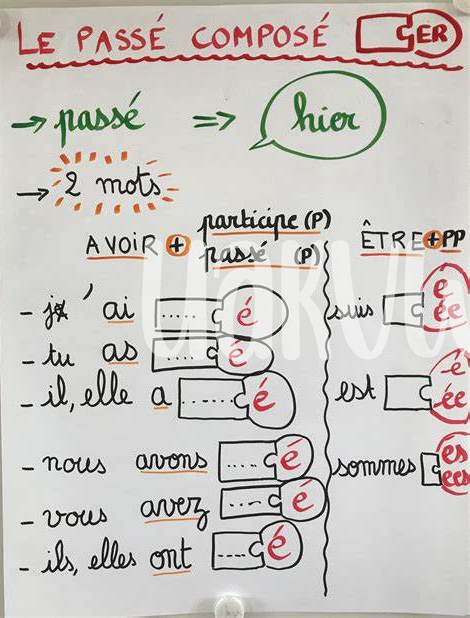 LE PASSÉ COMPOSÉ ER
→ passé => hier
→ 2 mots
AVOIR + participe (P) passé (P)
ÊTRE + PP
- je ' ai ..... é
- tu as ..... é
- il, elle a ..... é
- nous avons .... é
- vous avez .... é
- ils, elles ont .... é
suis é ée
est -é -ée
sommes és ées